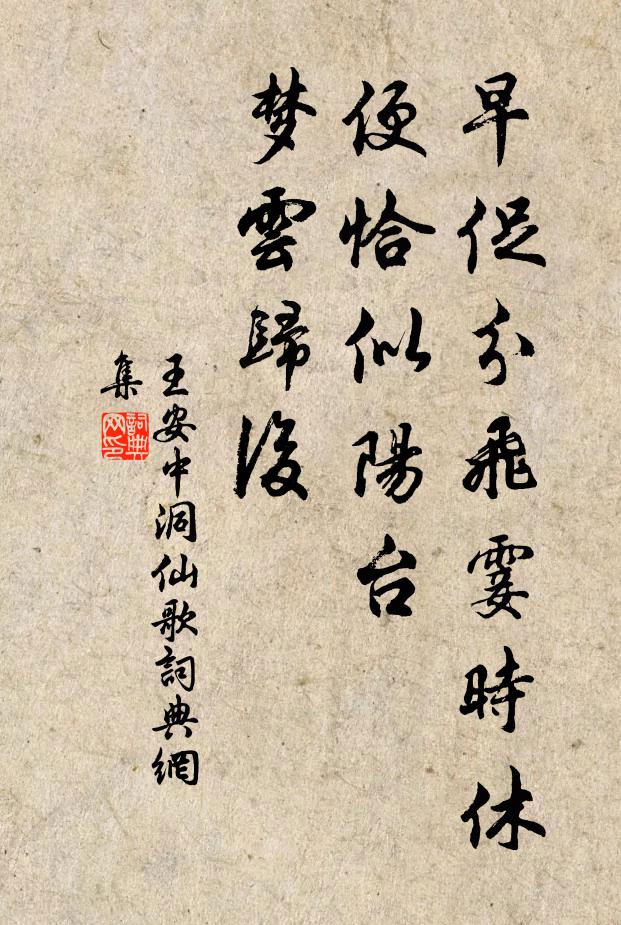 早促分飛霎時休
便恰似陽台
梦雲歸後
王安中洞仙歌詞典網
集
詞典
网印